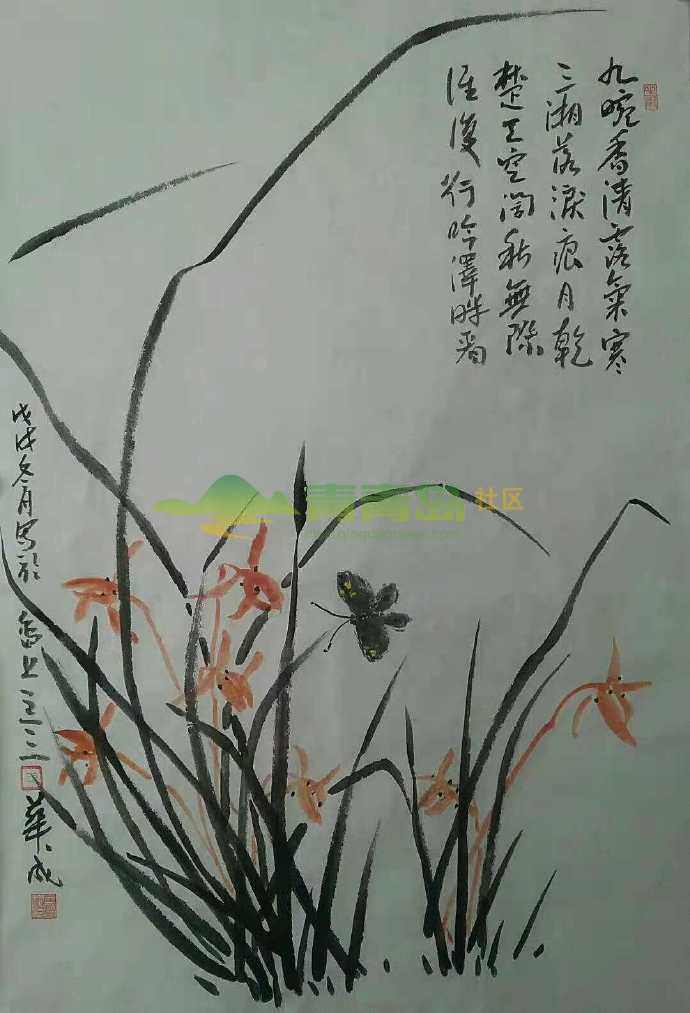 九畹香清露氣寒
三湘落淚痕月乾
楚王空闊秋無際
誰復行吟澤畔看
戊戌冬月寫於
島上
華成
青青岛社区